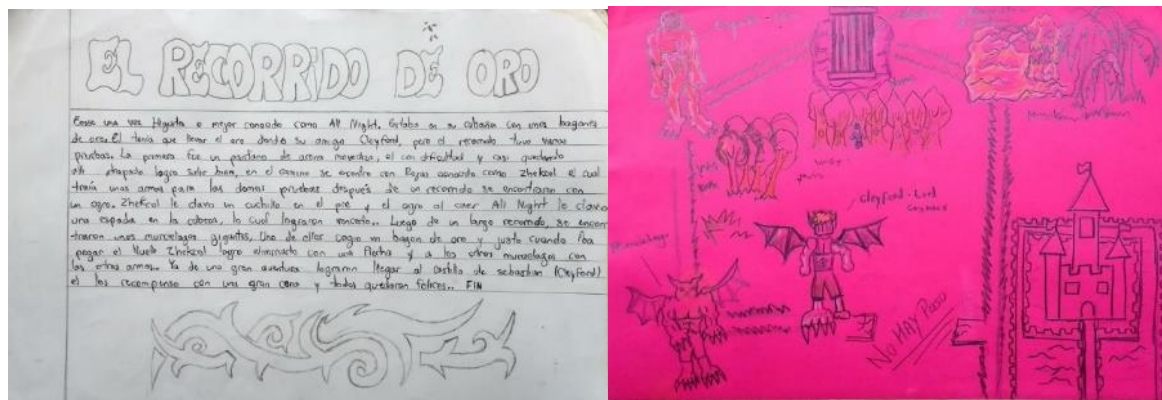 EL RECORRIDO DE ORO
Erase una vez Higuita o mejor conocido como All Night. Estaba en su cabaña con unos bagones
de oro. El tenia que llevar el oro donde su amigo Cleyford, pero el recorrido tuvo varias
pruebas. La primera fue un pantano de arena movediza, el con dificultad y casi quedando
alli atrapado logro salir bien, en el camino se encontro con Rojas conocido como Zhekzol el cual
traia unas armas para las demas pruebas después de un recorrido se encontraron con
un ogro. Zhekzol le clavo un cuchillo en el pie y el ogro al caer All Night le clavo
una espada en la cabeza, lo cual lograron vencerlo.. Luego de un largo recorrido, se encon
traron unos murcielagos gigantes, Uno de ellos cogio un bagon de oro y justo cuando iba
pegar el vuelo Zhekzol logro eliminarlo con una flecha y a los otros murcielagos con
las otras armas. Ya de una gran aventura lograron llegar al castillo de sebastian (Cleyford)
el los recompenso con una gran cena y todos quedaron felices.. FIN
cleyford - Lord
Murcielago
NO HAY Paso